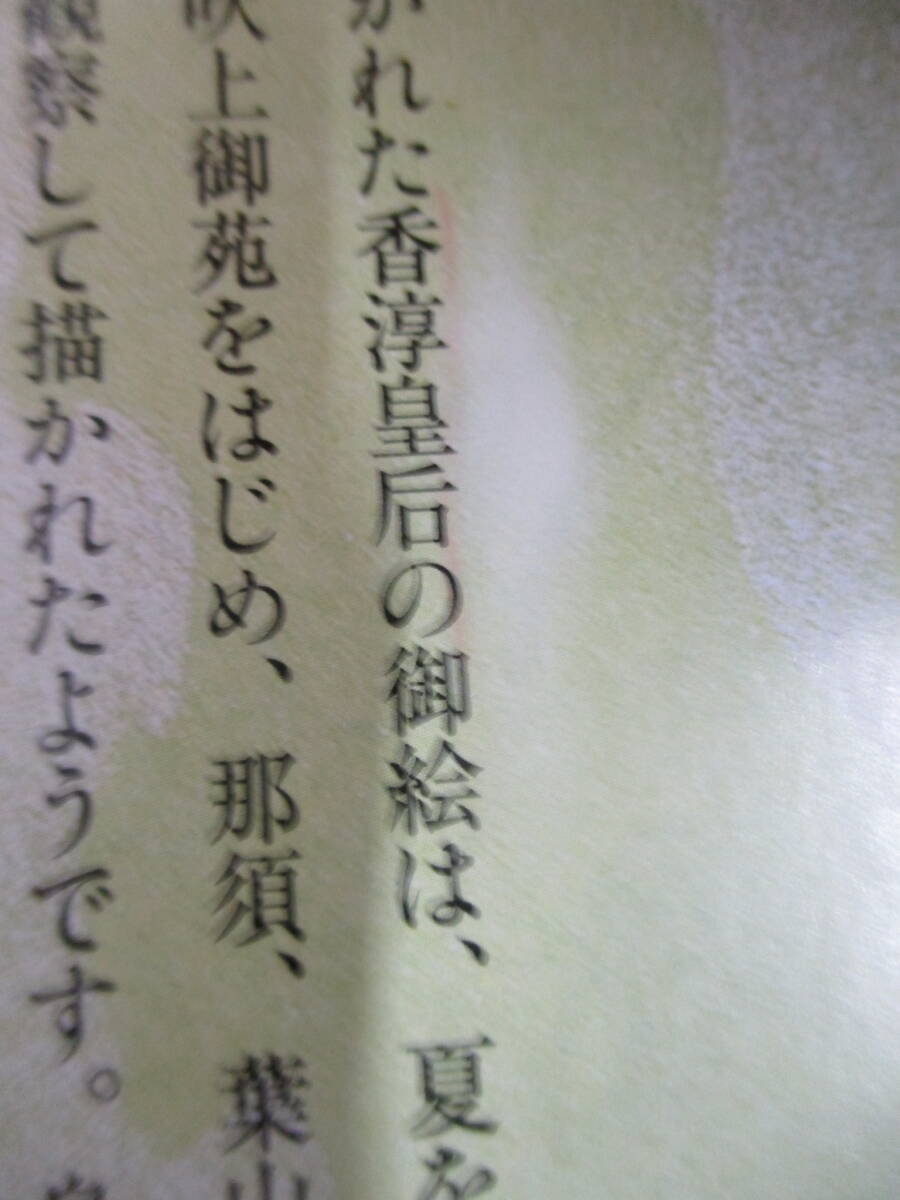 かれた香淳皇后の御絵は、夏を
吹上御苑をはじめ、那須、葉山
観察して描かれたようです。